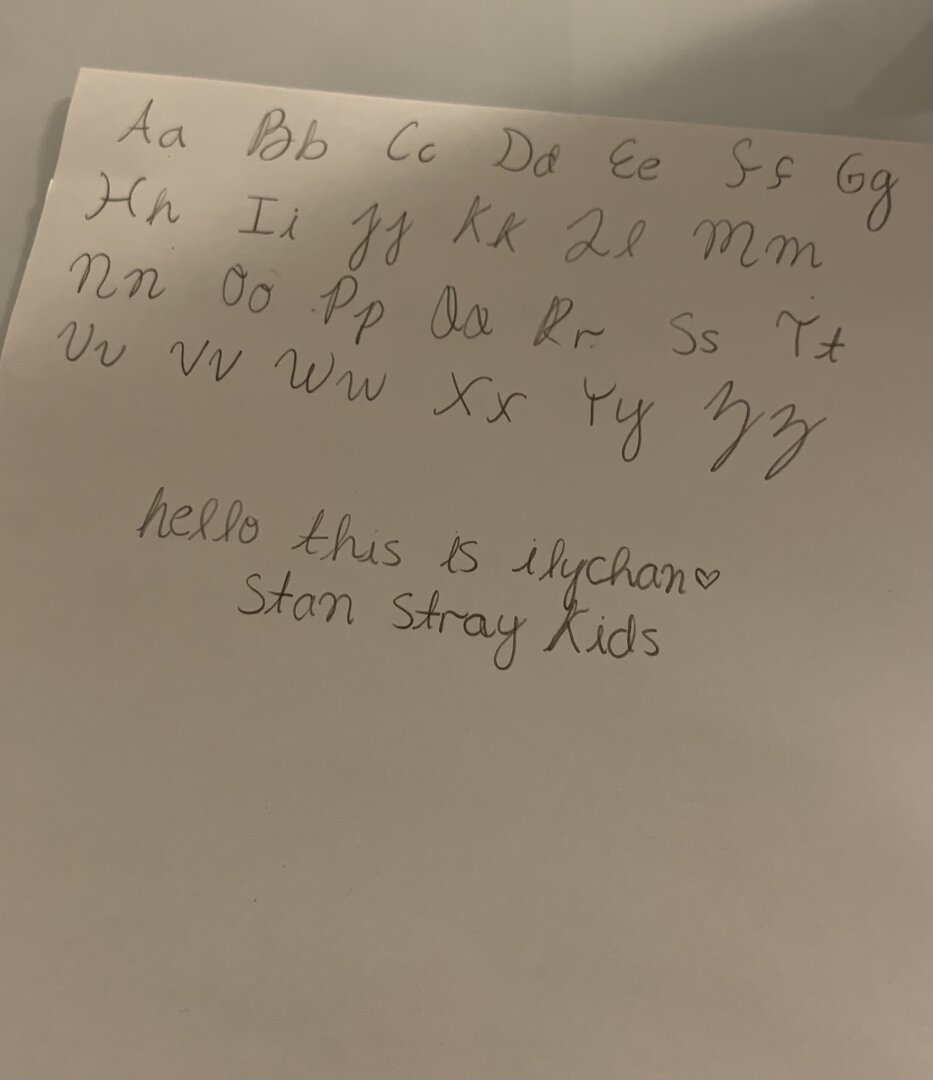 Aa Bb Cc Dd Ee Ff Gg
Hh Ii Jj Kk Ll Mm
Nn Oo Pp Qq Rr Ss Tt
Uu Vv Ww Xx Yy Zz
hello this is ilychan♡
Stan Stray Kids